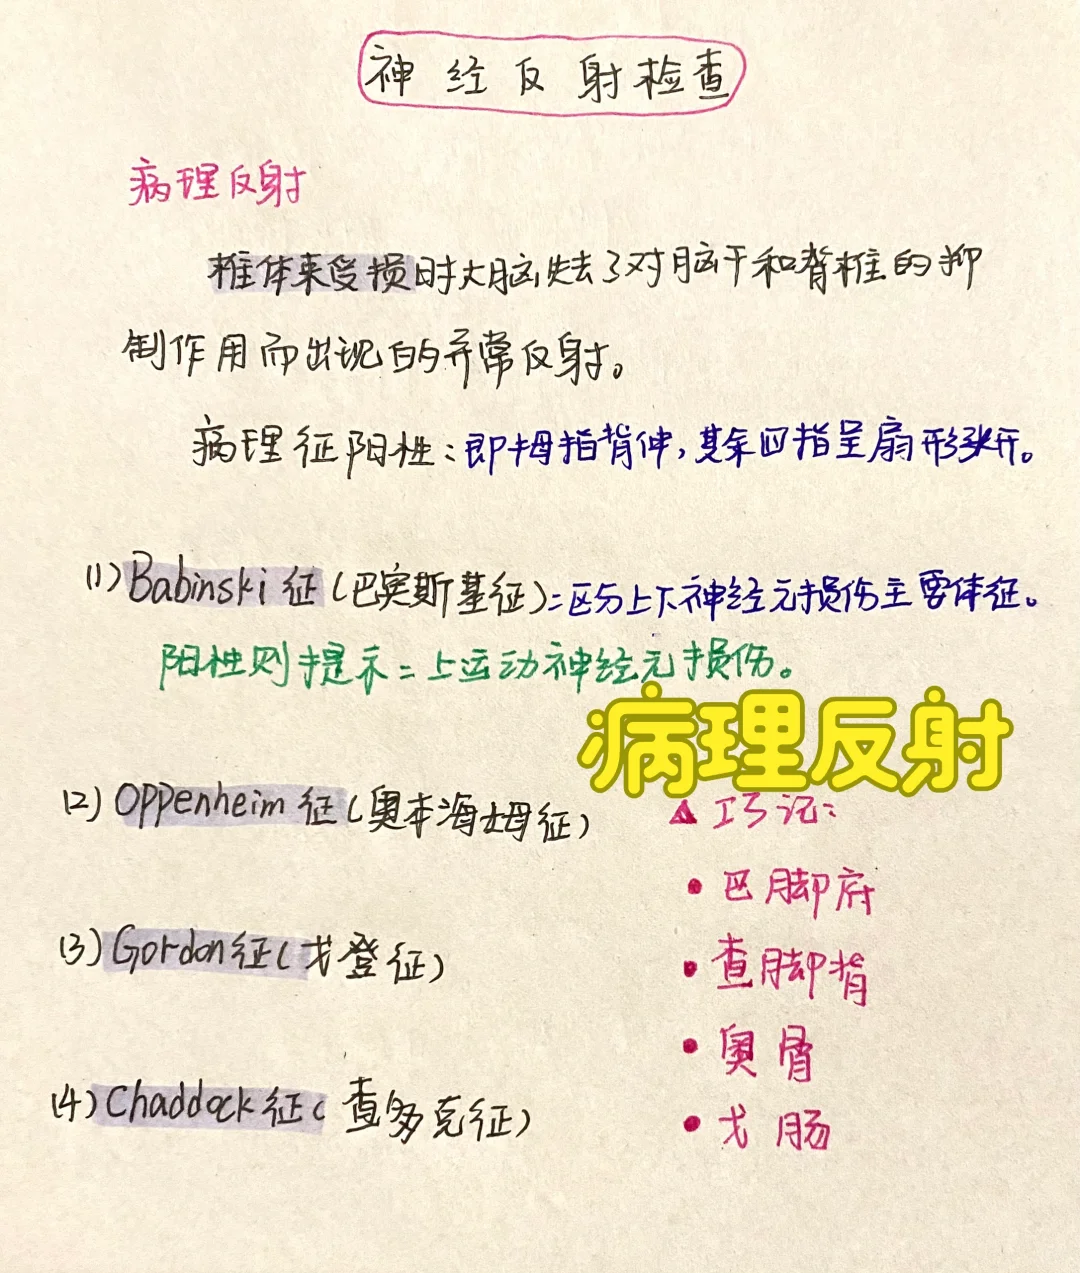 神经反射检查
病理反射
椎体束受损时大脑失去了对脑干和脊椎的抑
制作用而出现的异常反射。
病理征阳性:即拇指背伸,其余四指呈扇形张开。
(1) Babinski 征(巴宾斯基征):区分上下神经元损伤主要体征。
阳性则提示:上运动神经元损伤。
病理反射
(2) Oppenheim 征(奥本海姆征)
(3) Gordon征(戈登征)
(4) Chaddock 征(查多克征)
▲ 巧记:
• 巴脚府
• 查脚背
• 奥骨
• 戈肠